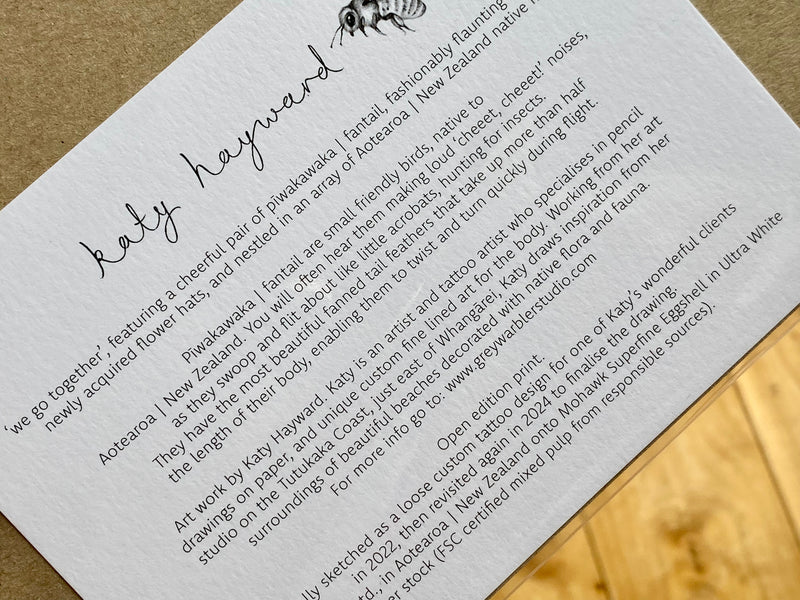 katy hayward
'we go together', featuring a cheerful pair of pīwakawaka | fantail, fashionably flaunting
newly acquired flower hats, and nestled in an array of Aotearoa | New Zealand native
Pīwakawaka | fantail are small friendly birds, native to
Aotearoa | New Zealand. You will often hear them making loud 'cheeet, cheeet!' noises,
as they swoop and flit about like little acrobats, hunting for insects.
They have the most beautiful fanned tail feathers that take up more than half
the length of their body, enabling them to twist and turn quickly during flight.
Art work by Katy Hayward. Katy is an artist and tattoo artist who specialises in pencil
drawings on paper, and unique custom fine lined art for the body. Working from her art
studio on the Tutukaka Coast, just east of Whangārei, Katy draws inspiration from her
surroundings of beautiful beaches decorated with native flora and fauna.
For more info go to: www.greywarblerstudio.com
Open edition print.
sketched as a loose custom tattoo design for one of Katy's wonderful clients
in 2022, then revisited again in 2024 to finalise the drawing.
in Aotearoa | New Zealand onto Mohawk Superfine Eggshell in Ultra White
stock (FSC certified mixed pulp from responsible sources).